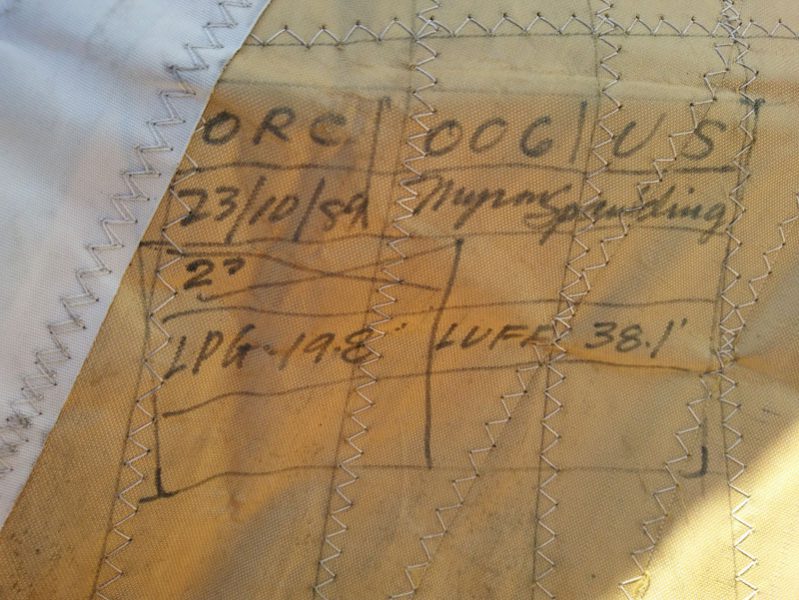 ORC 006 US
23/10/89 Myron Spaulding
LPG-19.8' LUFF 38.1'